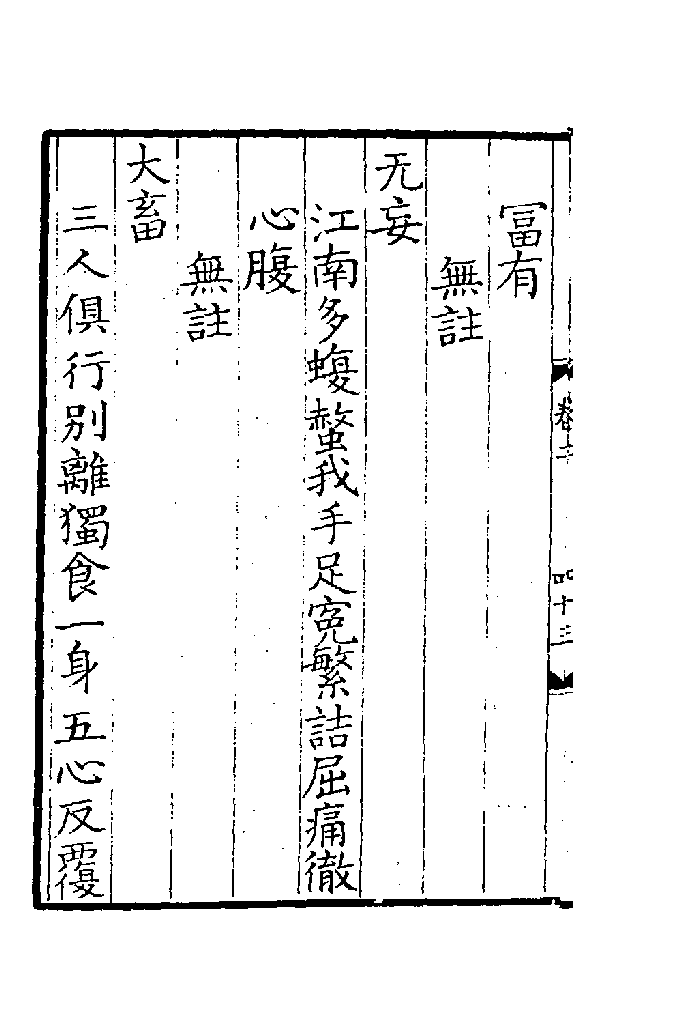 冨有
無註
无妄
江南多蝮螫我手足寃繁詰屈痛徹
心腹
無註
大畜
三人俱行別離獨食一身五心反覆
四十三